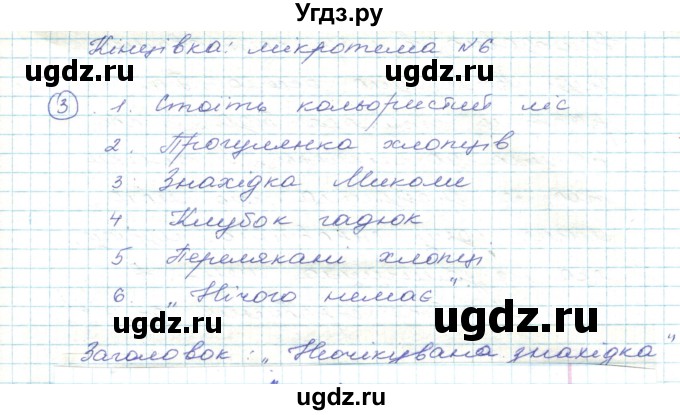 Угдз.ру
Кінцівка: мікротема №6
ugdz.ru ugdz.ru ugdz.ru
③ 1. Стоїть кольористий ліс
2. Прогулянка хлопців
3 Знахідка Миколи
4. Клубок гадюк
5. Перелякані хлопці
6. „Нічого немає"
ugdz.ru ugdz.ru ugdz.ru
Заголовок: „Неочікувана знахідка"
ugdz.ru ugdz.ru